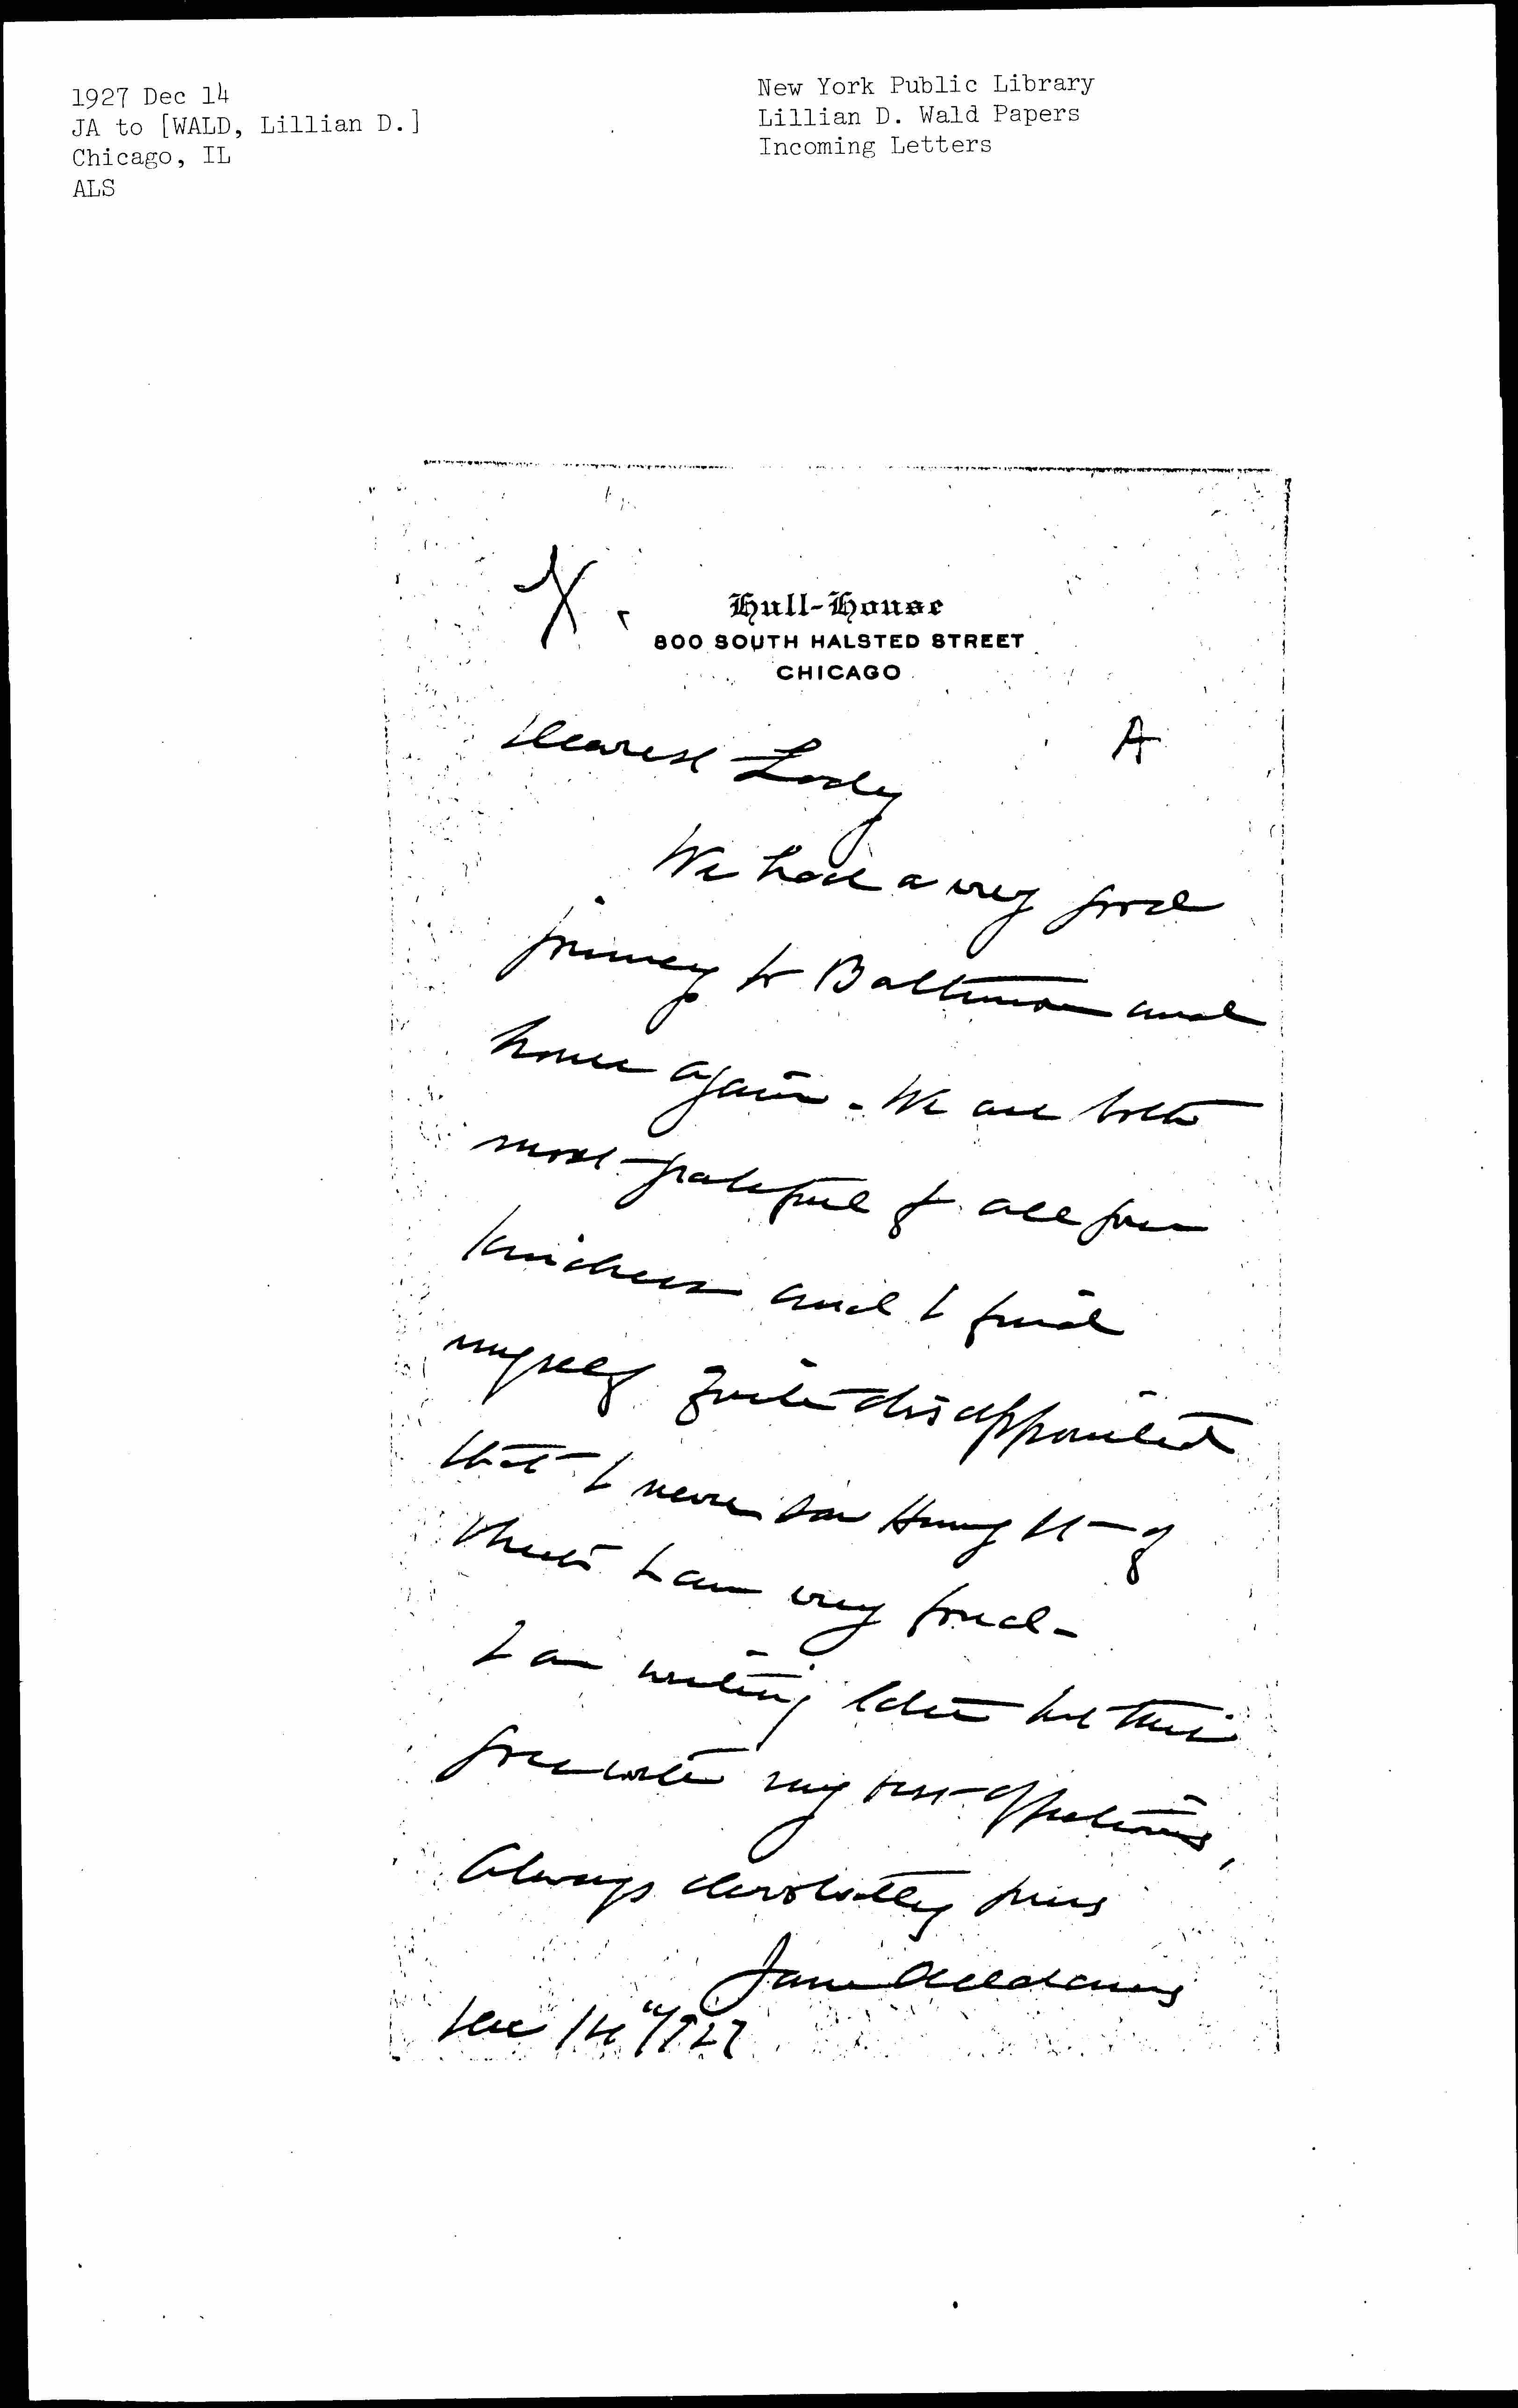 1927 Dec 14
JA to [WALD, Lillian D.]
Chicago, IL
ALS
New York Public Library
Lillian D. Wald Papers
Incoming Letters
X.
Hull-House
800 SOUTH HALSTED STREET
CHICAGO
A
Dearest Lady
We had a very good
journey to Baltimore and
home again. We are both
most grateful for all your
kindness and I find
myself quite disappointed
that I never saw Henry St - of
which I am very fond -
I am writing later but this
goes with my best affections,
Always devotedly yours
Jane Addams
Dec 14" 1927